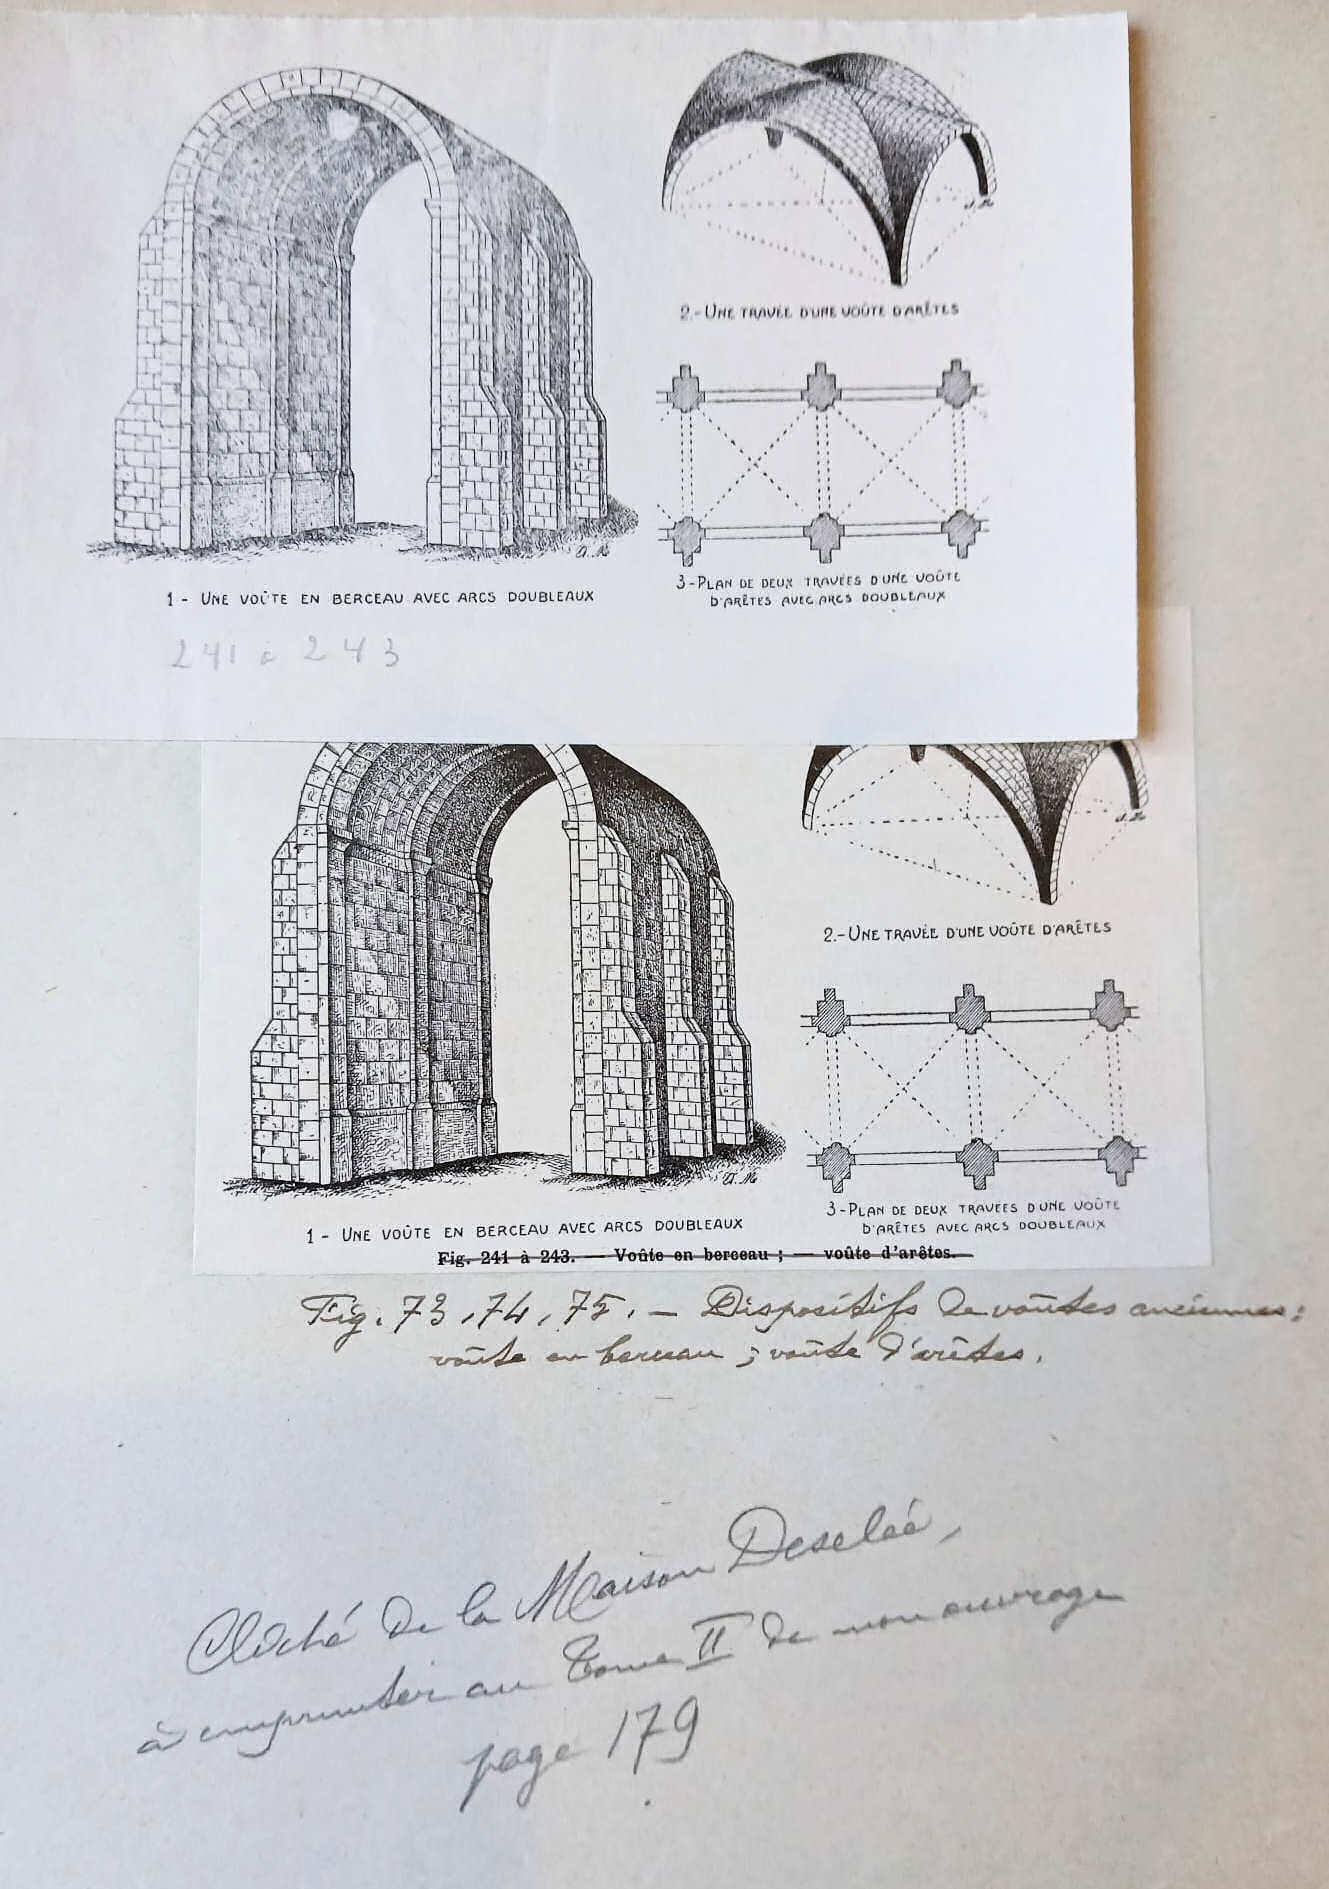 2.-UNE TRAVÉE D'UNE VOÛTE D'ARÊTES
1 - UNE VOÛTE EN BERCEAU AVEC ARCS DOUBLEAUX
3-PLAN DE DEUX TRAVÉES D'UNE VOÛTE
D'ARÊTES AVEC ARCS DOUBLEAUX
241 à 243
2.-UNE TRAVÉE D'UNE VOÛTE D'ARÊTES
3-PLAN DE DEUX TRAVÉES D'UNE VOÛTE
D'ARÊTES AVEC ARCS DOUBLEAUX
1 - UNE VOÛTE EN BERCEAU AVEC ARCS DOUBLEAUX
Fig. 241 à 243. — Voûte en berceau ; — voûte d'arêtes.
Fig. 73, 74, 75. — Dispositifs de voûtes anciennes :
voûte en berceau ; voûte d'arêtes.
Cliché de la Maison Desclée,
à emprunter au Tome II de mon ouvrage
page 179